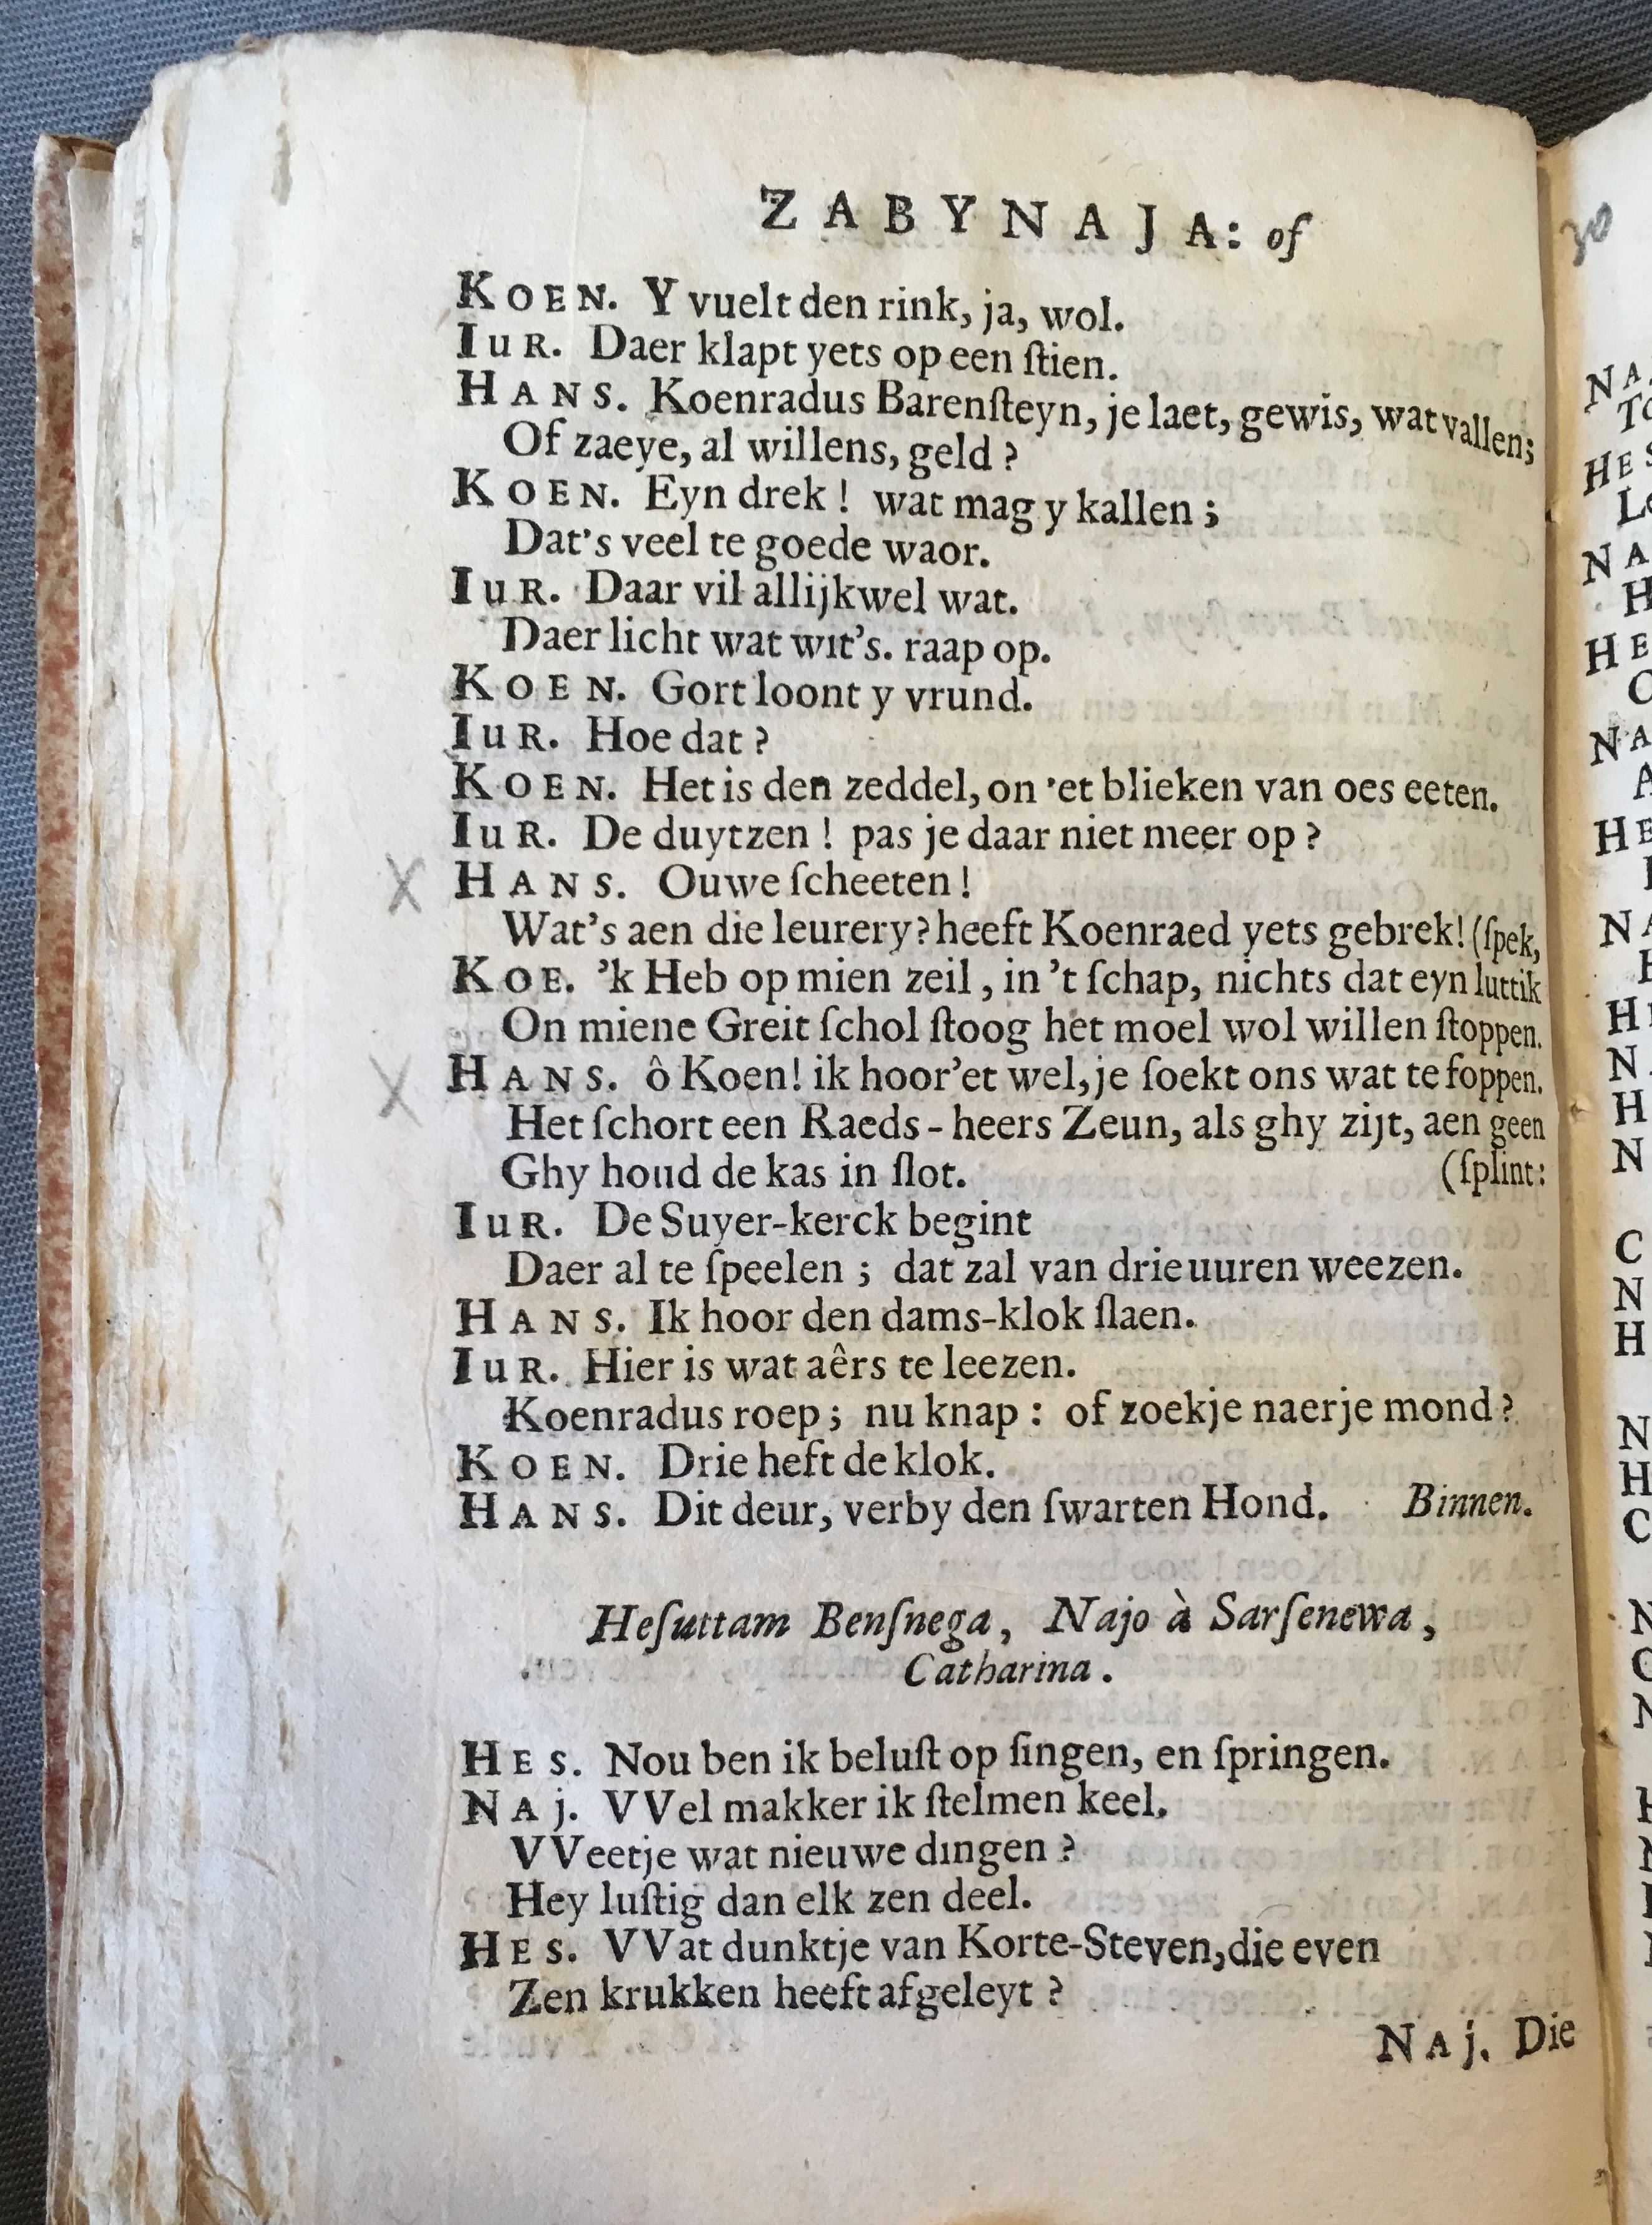 ZABYNAJA: of
KOEN. Y vuelt den rink, ja, wol.
IuR. Daer klapt yets op een ſtien.
HANS. Koenradus Barenſteyn, je laet, gewis, wat vallen;
Of zaeye, al willens, geld ?
KOEN. Eyn drek ! wat mag y kallen ;
Dat's veel te goede waor.
IuR. Daar vil allijkwel wat.
Daer licht wat wit's. raap op.
KOEN. Gort loont y vrund.
IuR. Hoe dat ?
KOEN. Het is den zeddel, on 'et blieken van oes eeten.
IuR. De duytzen ! pas je daar niet meer op ?
X HANS. Ouwe ſcheeten !
Wat's aen die leurery? heeft Koenraed yets gebrek! (ſpek,
KOE. 'k Heb op mien zeil, in 't ſchap, nichts dat eyn luttik
On miene Greit ſchol ſtoog het moel wol willen ſtoppen.
X HANS. ô Koen! ik hoor'et wel, je ſoekt ons wat te foppen.
Het ſchort een Raeds-heers Zeun, als ghy zijt, aen geen
Ghy houd de kas in ſlot. (ſplint:
IuR. De Suyer-kerck begint
Daer al te ſpeelen ; dat zal van drie uuren weezen.
HANS. Ik hoor den dams-klok ſlaen.
IuR. Hier is wat aêrs te leezen.
Koenradus roep ; nu knap : of zoekje naerje mond ?
KOEN. Drie heft de klok.
HANS. Dit deur, verby den ſwarten Hond. Binnen.
Heſuttam Benſnega, Najo à Sarſenewa,
Catharina.
HES. Nou ben ik beluſt op ſingen, en ſpringen.
NAj. VVel makker ik ſtelmen keel.
VVeetje wat nieuwe dingen ?
Hey luſtig dan elk zen deel.
HES. VVat dunktje van Korte-Steven, die even
Zen krukken heeft afgeleyt ?
NAj. Die